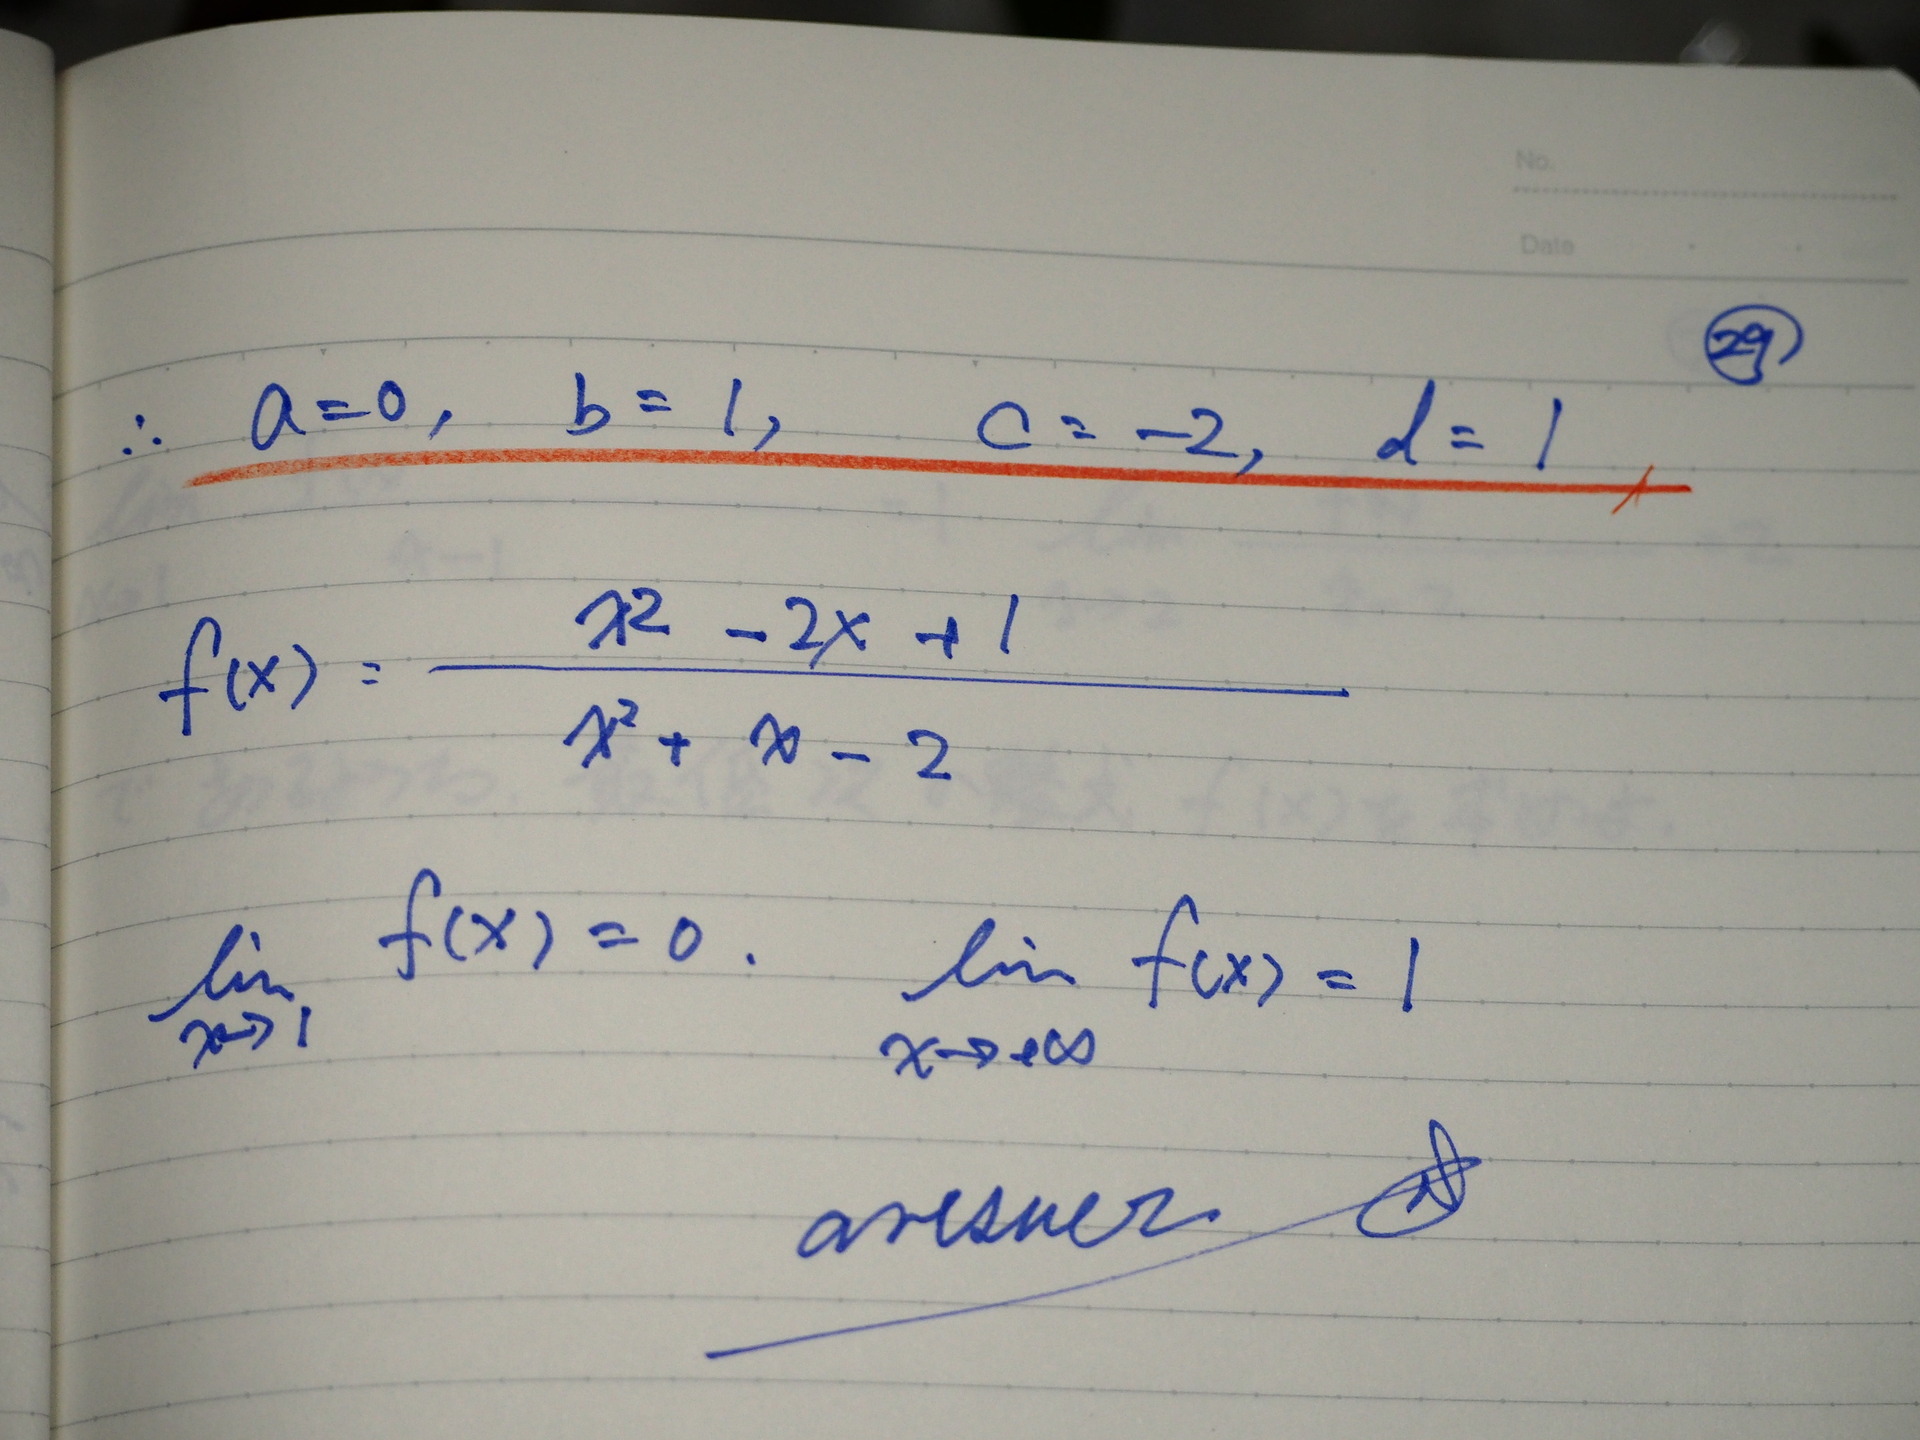 No.
Date
㉙
∴ a=0, b=1, c=-2, d=1
f(x) = \frac{x² - 2x + 1}{x² + x - 2}
lim_{x→1} f(x) = 0. lim_{x→+∞} f(x) = 1
answer